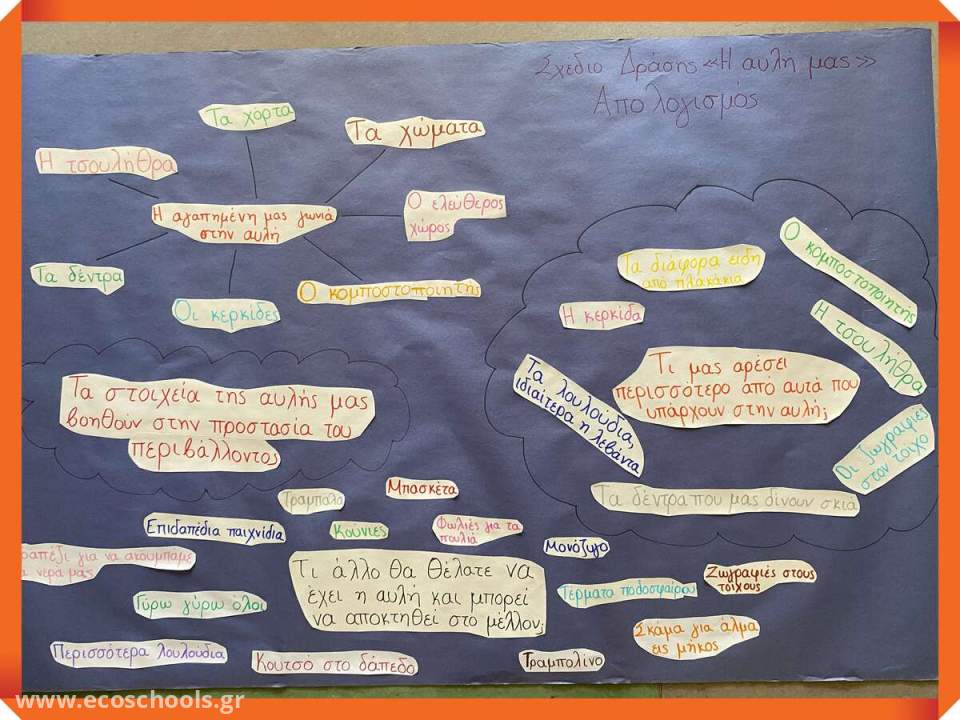 Σχέδιο Δράσης «Η αυλή μας»
Απολογισμός
Τα χόρτα
Τα χώματα
Η τσουλήθρα
Ο ελεύθερος
χώρος
Η αγαπημένη μας γωνιά
στην αυλή
Τα δέντρα
Οι κερκίδες
Ο κομποστοποιητής
Τα διάφορα είδη
από πλακάκια
Ο κομποστοποιητής
Η κερκίδα
Η τσουλήθρα
Τι μας αρέσει
περισσότερο από αυτά που
υπάρχουν στην αυλή;
Τα λουλούδια,
ιδιαίτερα η λεβάντα
Οι ζωγραφιές
στον τοίχο
Τα δέντρα που μας δίνουν σκιά
Τα στοιχεία της αυλής μας
βοηθούν στην προστασία του
περιβάλλοντος
Τραμπάλα
Μπασκέτα
Επιδαπέδια παιχνίδια
Κούνιες
Φωλιές για τα
πουλιά
Μονόζυγο
για να ακουμπάμε
νερά μας
Τι άλλο θα θέλατε να
έχει η αυλή και μπορεί
να αποκτηθεί στο μέλλον;
Τέρματα ποδοσφαίρου
Ζωγραφιές στους
τοίχους
Γύρω γύρω όλοι
Σκάμα για άλμα
εις μήκος
Περισσότερα λουλούδια
Κουτσό στο δάπεδο
Τραμπολίνο
www.ecoschools.gr